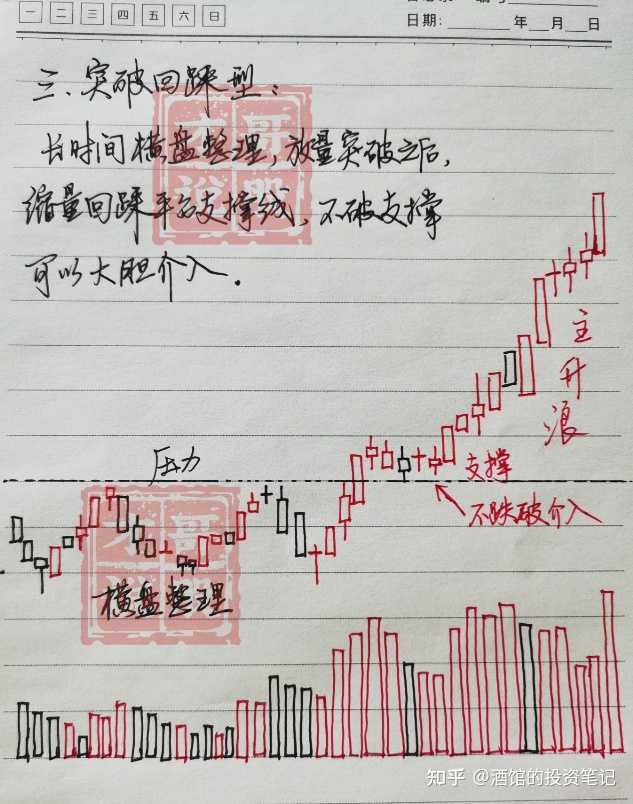 一 二 三 四 五 六 日
日期: 年 月 日
三、突破回踩型：
长时间横盘整理，放量突破之后，
缩量回踩平台支撑线，不破支撑
可以大胆介入．
主升浪
压力
支撑
不跌破介入
横盘整理
知乎 @酒馆的投资笔记